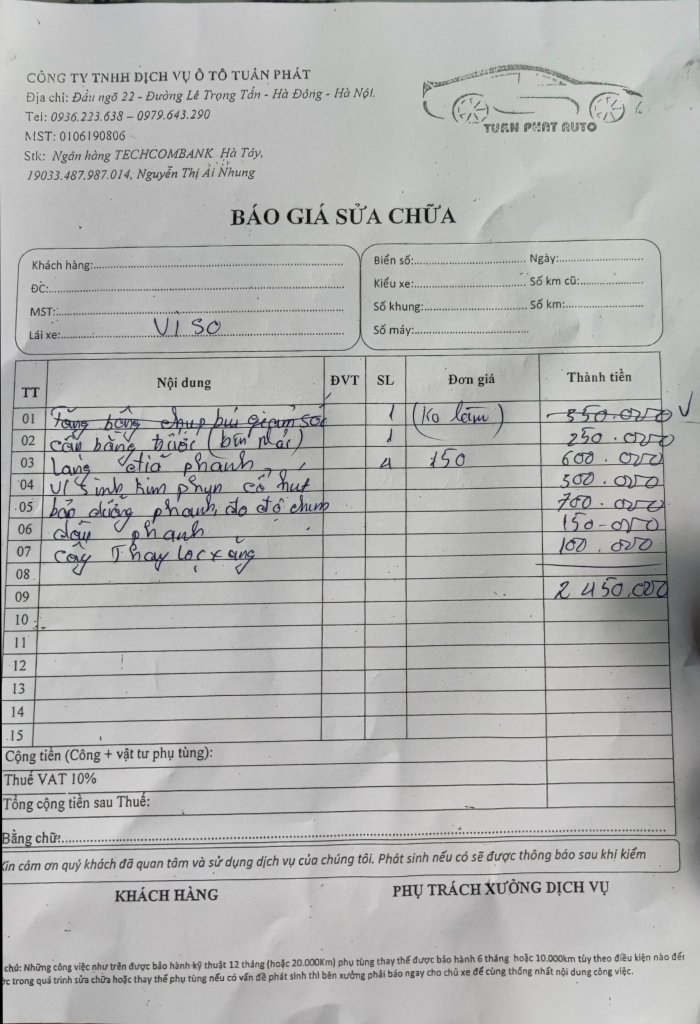 CÔNG TY TNHH DỊCH VỤ Ô TÔ TUẤN PHÁT
Địa chỉ: Đầu ngõ 22 - Đường Lê Trọng Tấn - Hà Đông - Hà Nội.
Tel: 0936.223.638 – 0979.643.290
MST: 0106190806
Stk: Ngân hàng TECHCOMBANK Hà Tây,
19033.487.987.014, Nguyễn Thị Ái Nhung
TUAN PHAT AUTO
BÁO GIÁ SỬA CHỮA
Khách hàng:
ĐC:
MST:
Lái xe: VISO
Biển số: Ngày:
Kiểu xe: Số km cũ:
Số khung: Số km:
Số máy:
TT Nội dung ĐVT SL Đơn giá Thành tiền
01 Tăng bông chụp bụi giảm sóc 1 (Ko làm) 350.000 V
02 cân bằng trước 1 250.000
03 Láng đĩa phanh 4 150 600.000
04 Vệ sinh kim phun cổ hút 300.000
05 bảo dưỡng phanh, đo độ chụm 700.000
06 dầu phanh 150.000
07 công Thay lọc xăng 100.000
08
09 2 450.000
10
11
12
13
14
15
Cộng tiền (Công + vật tư phụ tùng):
Thuế VAT 10%
Tổng cộng tiền sau Thuế:
Bằng chữ:
Xin cám ơn quý khách đã quan tâm và sử dụng dịch vụ của chúng tôi. Phát sinh nếu có sẽ được thông báo sau khi kiểm
KHÁCH HÀNG PHỤ TRÁCH XƯỞNG DỊCH VỤ
chú: Những công việc như trên được bảo hành kỹ thuật 12 tháng (hoặc 20.000Km) phụ tùng thay thế được bảo hành 6 tháng hoặc 10.000km tùy theo điều kiện nào đến
trong quá trình sửa chữa hoặc thay thế phụ tùng nếu có vấn đề phát sinh thì bên xưởng phải báo ngay cho chủ xe để cùng thống nhất nội dung công việc.